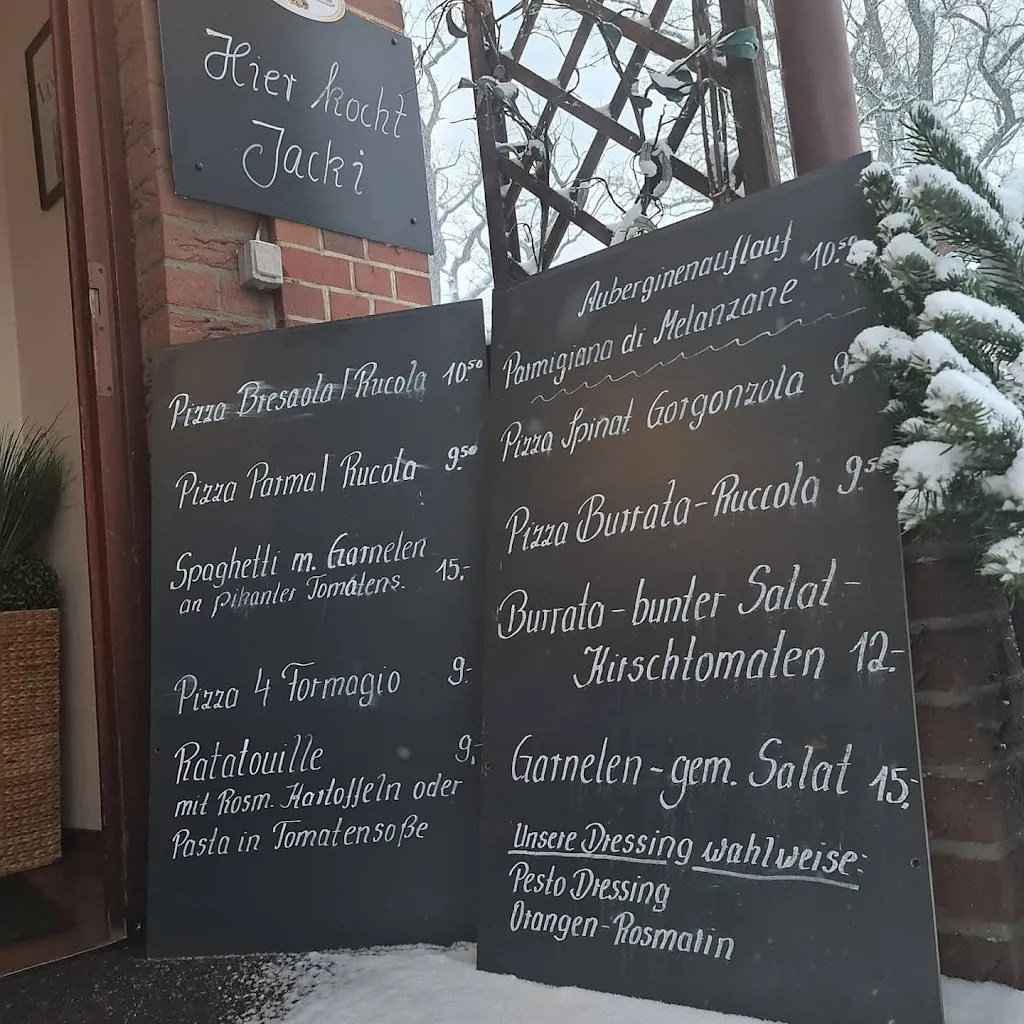 Hier kocht
Jacki
Pizza Bresaola / Rucola 10.50
Pizza Parma / Rucola 9.50
Spaghetti m. Garnelen
an pikanter Tomatens. 15,-
Pizza 4 Formagio 9.-
Ratatouille 9,-
mit Rosm. Kartoffeln oder
Pasta in Tomatensoße
Auberginenauflauf 10.50
Parmigiana di Melanzane
Pizza Spinat Gorgonzola
Pizza Burrata-Ruccola 9.50
Burrata - bunter Salat -
Kirschtomaten 12.-
Garnelen - gem. Salat 15,-
Unsere Dressing wahlweise:
Pesto Dressing
Orangen-Rosmarin